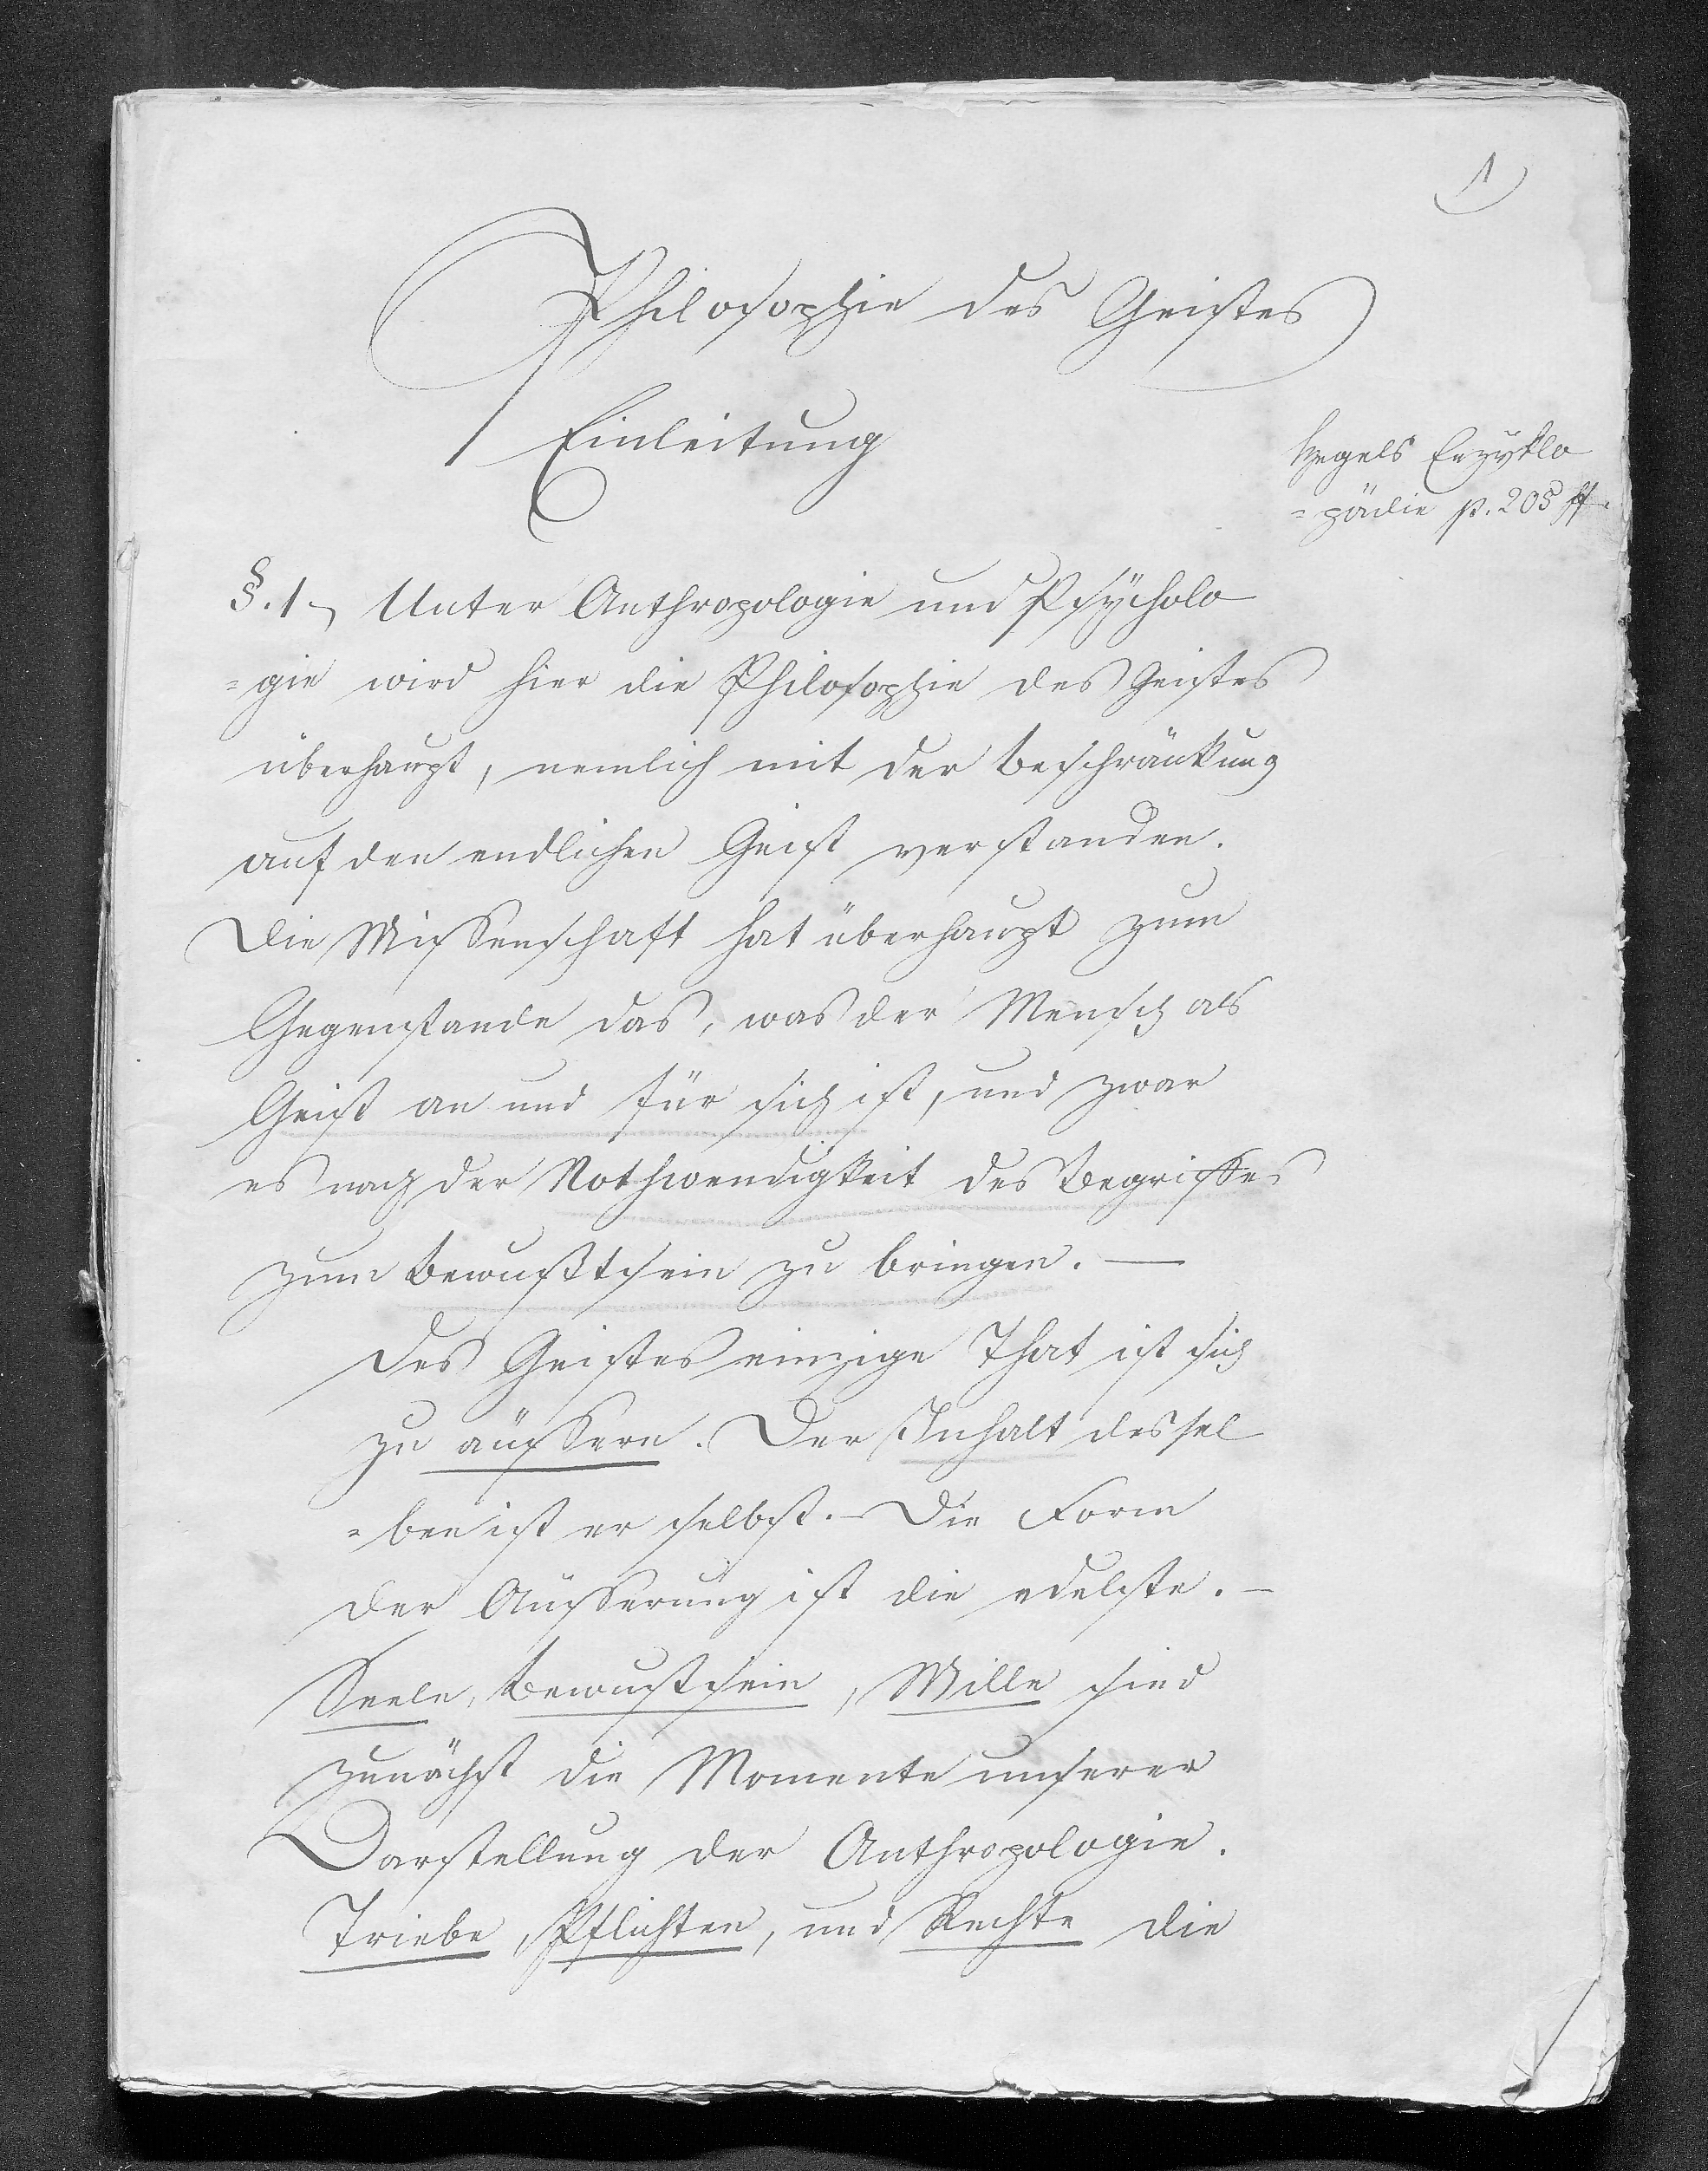 1
Philosophie des Geistes
Einleitung
Hegels Enzyklo
=pädie p. 205 ff.
§. 1, Unter Anthropologie und Psÿcholo
=gie wird hier die Philosophie des Geistes
überhaupt, nemlich mit der Beschränkung
auf den endlichen Geist verstanden.
Die Wissenschaft hat überhaupt zum
Gegenstande das, was der Mensch als
Geist an und für sich ist, und zwar
es nach der Nothwendigkeit des Begriffes
zum Bewußtsein zu bringen. —
Des Geistes einzige That ist sich
zu äussern. Der Inhalt dessel
=ben ist er selbst. – Die Form
der Äusserung ist die edelste. –
Seele, Bewustsein, Wille sind
zunächst die Momente unserer
Darstellung der Anthropologie.
Triebe, Pflichten, und Rechte die